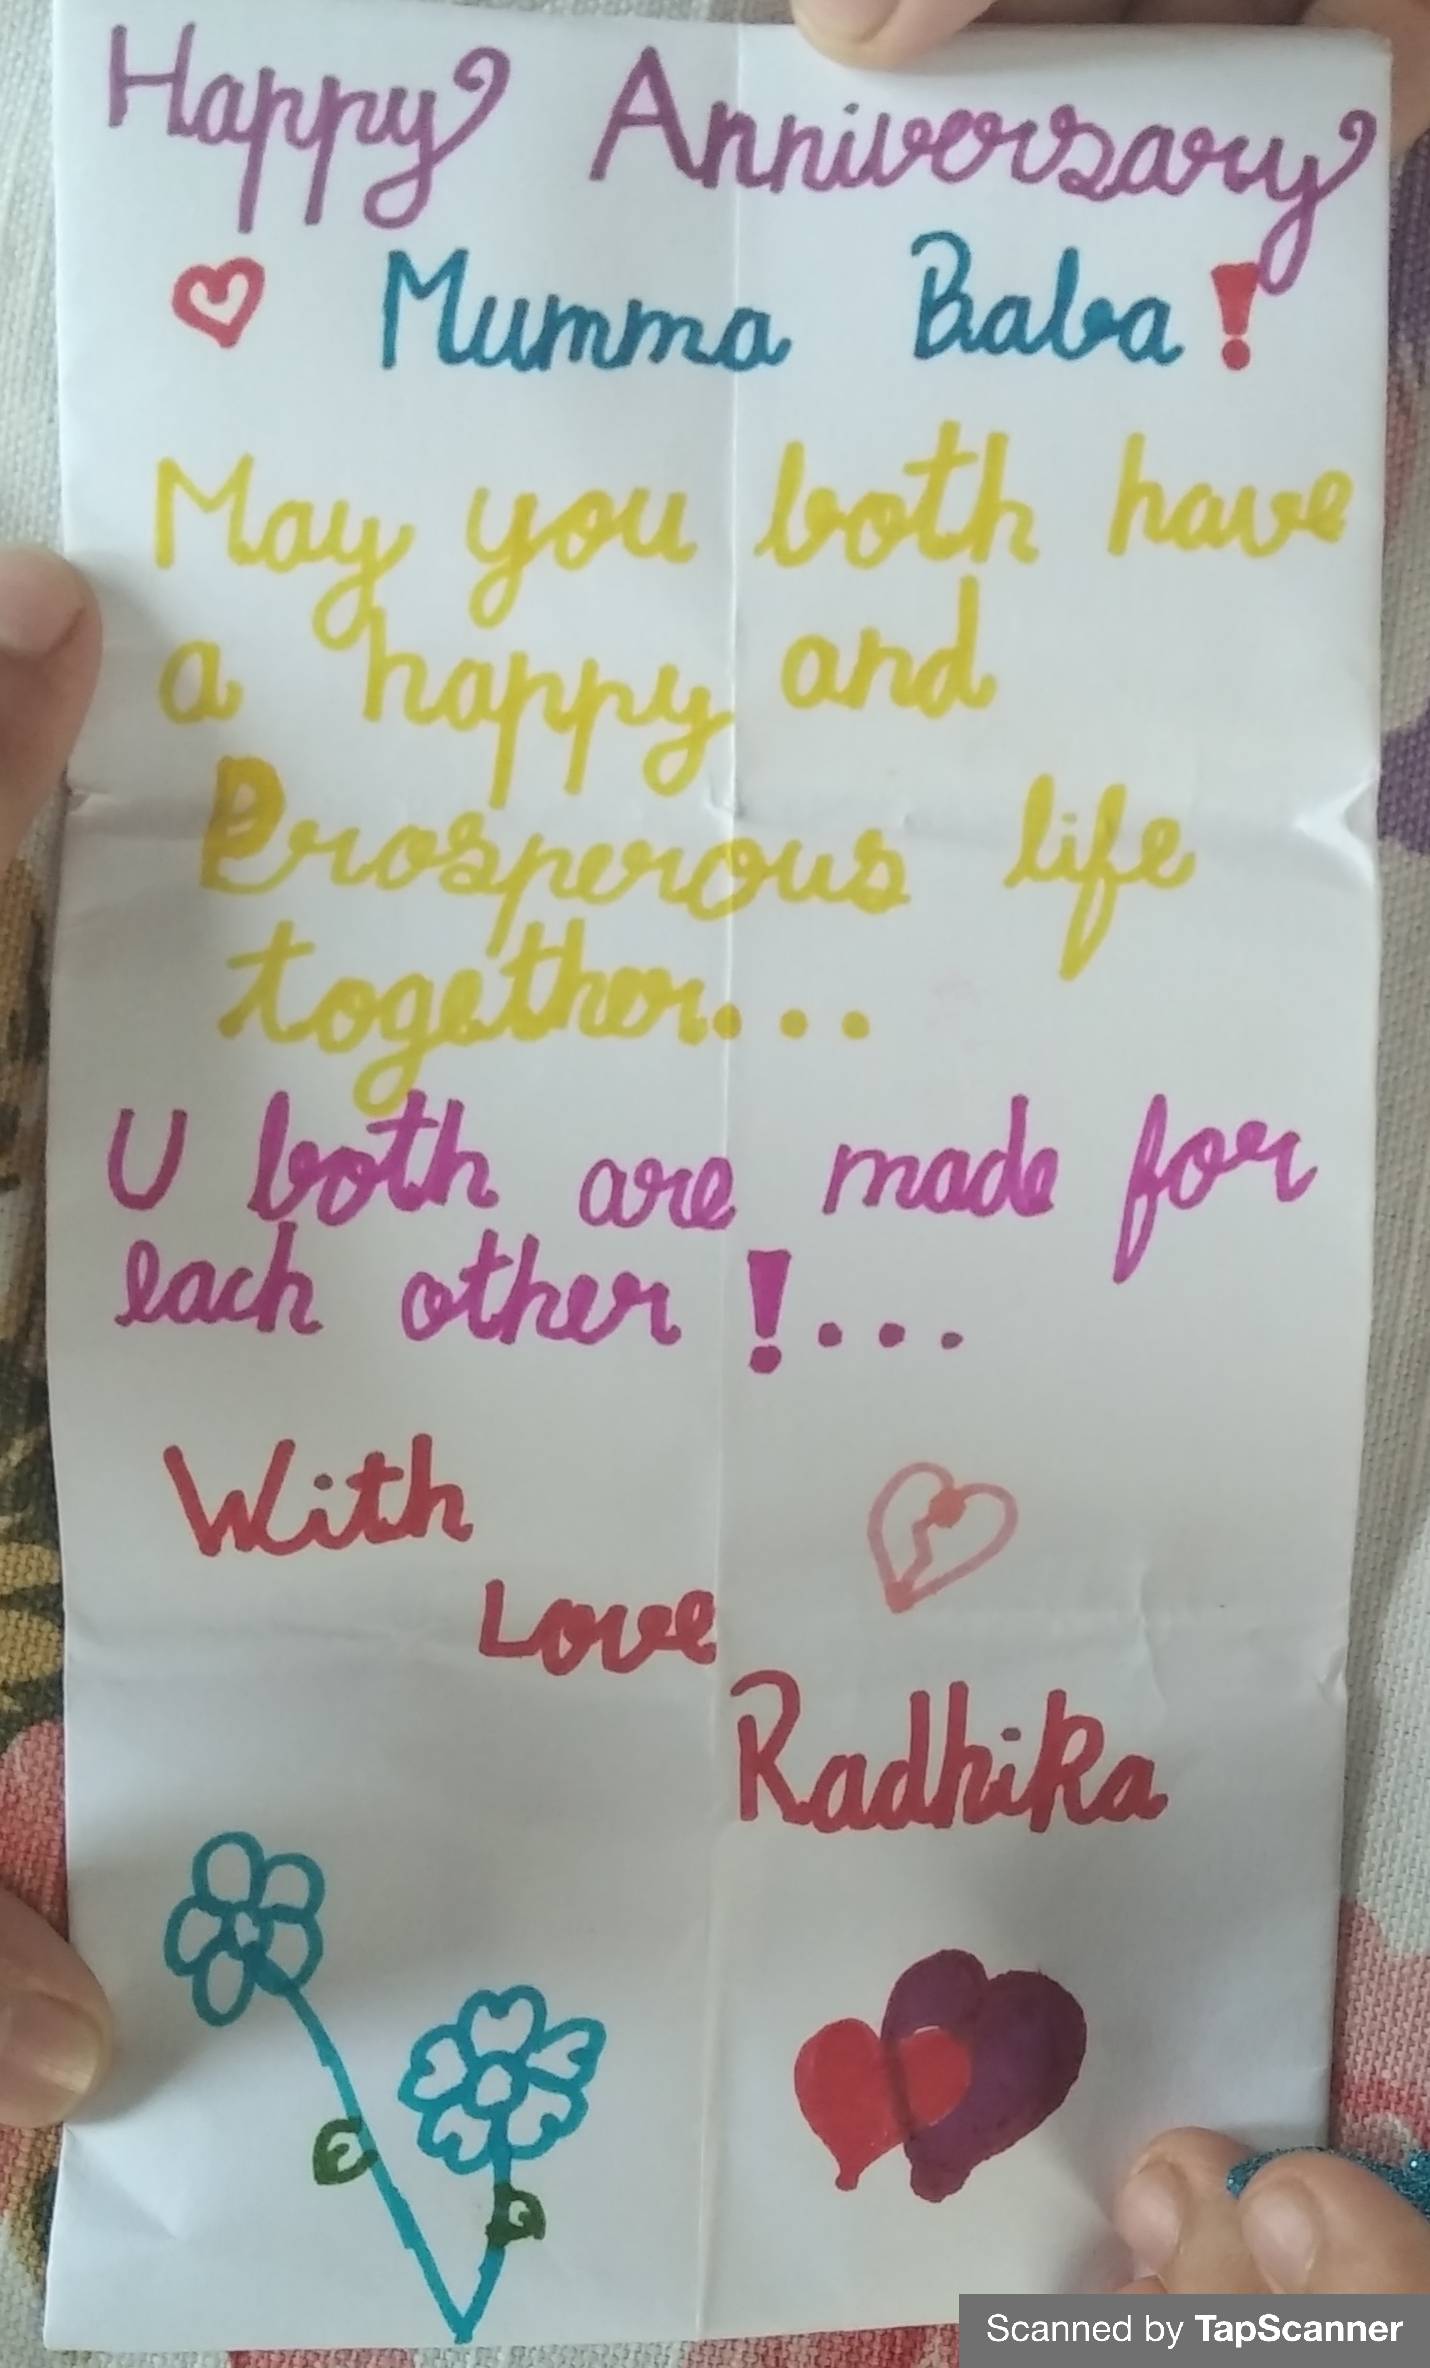 Happy Anniversary
Mumma Baba!
May you both have
a happy and
Prosperous life
together...
U both are made for
each other!...
With
Love
Radhika
Scanned by TapScanner